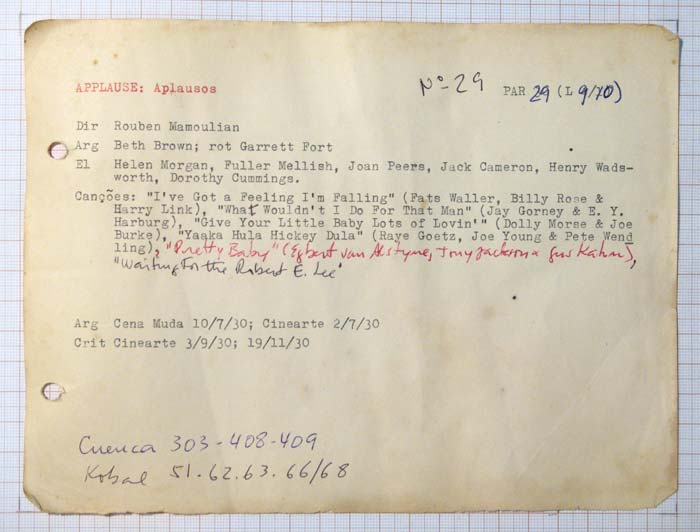 APPLAUSE: Aplausos
Nº 29
PAR 29 (L 9/10)
Dir Rouben Mamoulian
Arg Beth Brown; rot Garrett Fort
El Helen Morgan, Fuller Mellish, Joan Peers, Jack Cameron, Henry Wads-
worth, Dorothy Cummings.
Canções: "I've Got a Feeling I'm Falling" (Fats Waller, Billy Rose &
Harry Link), "What Wouldn't I Do For That Man" (Jay Gorney & E. Y.
Harburg), "Give Your Little Baby Lots of Lovin'" (Dolly Morse & Joe
Burke), "Yaaka Hula Hickey Dula" (Raye Goetz, Joe Young & Pete Wend
ling), "Pretty Baby" (Egbert van Alstyne, Tony Jackson & Gus Kahn),
"Waiting For the Robert E. Lee"
Arg Cena Muda 10/7/30; Cinearte 2/7/30
Crit Cinearte 3/9/30; 19/11/30
Cuenca 303-408-409
Kobal 51.62.63.66/68